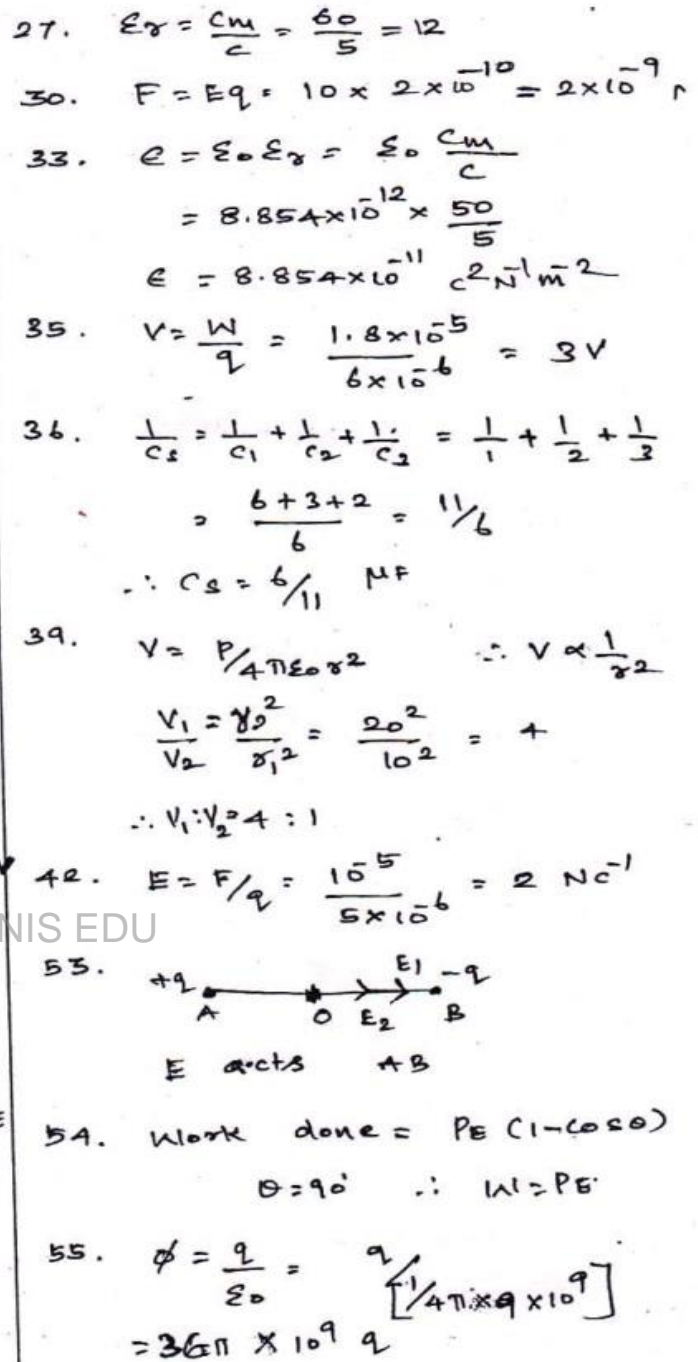 27. εr = Cm/C = 60/5 = 12
30. F = Eq = 10 × 2×10⁻¹⁰ = 2×10⁻⁹ N
33. ε = ε0 εr = ε0 Cm/C
= 8.854×10⁻¹² × 50/5
ε = 8.854×10⁻¹¹ C²N⁻¹m⁻²
35. V = W/q = 1.8×10⁻⁵/6×10⁻⁶ = 3V
36. 1/Cs = 1/C1 + 1/C2 + 1/C3 = 1/1 + 1/2 + 1/3
= 6+3+2/6 = 11/6
∴ Cs = 6/11 μF
39. V = P/4πε0r² ∴ V ∝ 1/r²
V1/V2 = r2²/r1² = 20²/10² = 4
∴ V1:V2 = 4 : 1
42. E = F/q = 10⁻⁵/5×10⁻⁶ = 2 NC⁻¹
NIS EDU
53. +q A O E2 E1 B -q
E acts AB
54. Work done = PE (1-cosθ)
θ=90° ∴ W=PE
55. φ = q/ε0 = q/[1/4π×9×10⁹]
= 36π × 10⁹ q